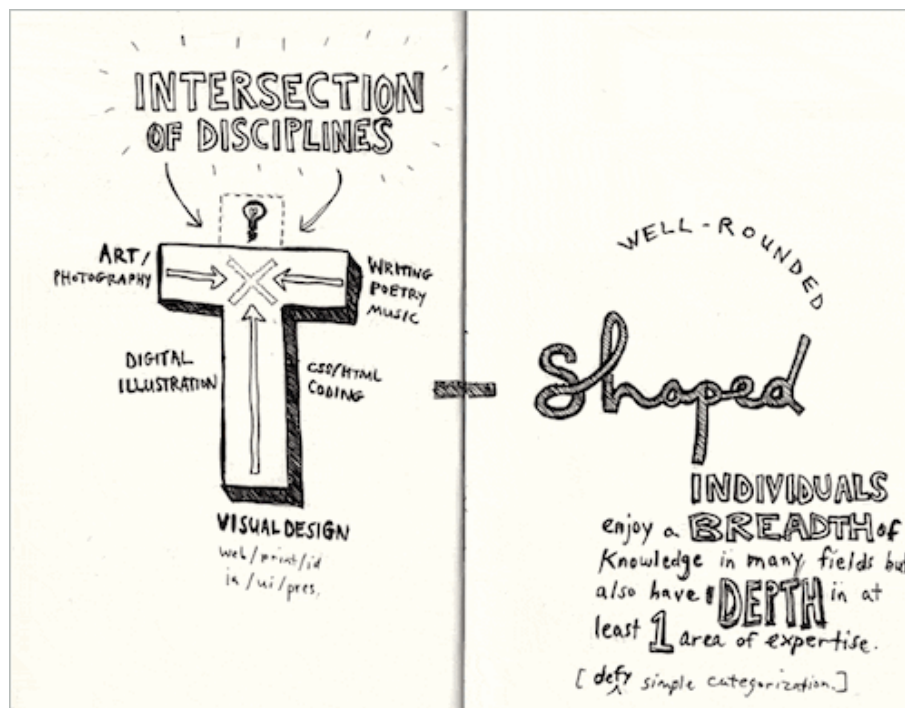 INTERSECTION
OF DISCIPLINES
ART/
PHOTOGRAPHY
WRITING
POETRY
MUSIC
DIGITAL
ILLUSTRATION
CSS/HTML
CODING
VISUAL DESIGN
web/print/id
ia/ui/pres.
T-
WELL-ROUNDED
Shaped
INDIVIDUALS
enjoy a BREADTH of
Knowledge in many fields but
also have DEPTH in at
least 1 area of expertise.
[defy simple categorization.]